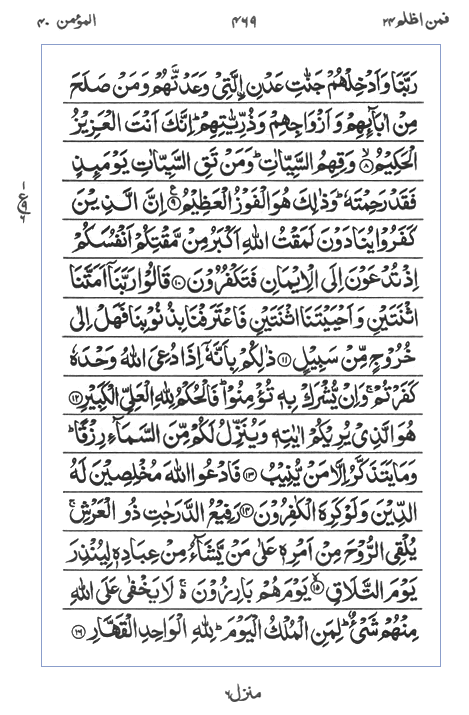 فمن اظلم ٢٤ ٤٦٩ المؤمن ٤٠
رَبَّنَا وَاَدْخِلْهُمْ جَنّٰتِ عَدْنِ ِۨالَّتِيْ وَعَدْتَّهُمْ وَمَنْ صَلَحَ
مِنْ اٰبَآئِهِمْ وَاَزْوَاجِهِمْ وَذُرِّيّٰتِهِمْ ؕ اِنَّكَ اَنْتَ الْعَزِيْزُ
الْحَكِيْمُ ۙ‏﴿۸﴾ وَقِهِمُ السَّيِّاٰتِ ؕ وَمَنْ تَقِ السَّيِّاٰتِ يَوْمَئِذٍ
فَقَدْ رَحِمْتَهٗ ؕ وَذٰلِكَ هُوَ الْفَوْزُ الْعَظِيْمُ ﴿۹﴾ اِنَّ الَّذِيْنَ
كَفَرُوْا يُنَادَوْنَ لَمَقْتُ اللّٰهِ اَكْبَرُ مِنْ مَّقْتِكُمْ اَنْفُسَكُمْ
اِذْ تُدْعَوْنَ اِلَى الْاِيْمَانِ فَتَكْفُرُوْنَ ﴿۱۰﴾ قَالُوْا رَبَّنَاۤ اَمَتَّنَا
اثْنَتَيْنِ وَاَحْيَيْتَنَا اثْنَتَيْنِ فَاعْتَرَفْنَا بِذُنُوْبِنَا فَهَلْ اِلٰى
خُرُوْجٍ مِّنْ سَبِيْلٍ ﴿۱۱﴾ ذٰلِكُمْ بِاَنَّهٗۤ اِذَا دُعِيَ اللّٰهُ وَحْدَهٗ
كَفَرْتُمْ ۚ وَاِنْ يُّشْرَكْ بِهٖ تُؤْمِنُوْا ؕ فَالْحُكْمُ لِلّٰهِ الْعَلِيِّ الْكَبِيْرِ ﴿۱۲﴾
هُوَ الَّذِيْ يُرِيْكُمْ اٰيٰتِهٖ وَيُنَزِّلُ لَكُمْ مِّنَ السَّمَآءِ رِزْقًا ؕ
وَمَا يَتَذَكَّرُ اِلَّا مَنْ يُّنِيْبُ ﴿۱۳﴾ فَادْعُوا اللّٰهَ مُخْلِصِيْنَ لَهُ
الدِّيْنَ وَلَوْ كَرِهَ الْكٰفِرُوْنَ ﴿۱۴﴾ رَفِيْعُ الدَّرَجٰتِ ذُو الْعَرْشِ ۚ
يُلْقِي الرُّوْحَ مِنْ اَمْرِهٖ عَلٰى مَنْ يَّشَآءُ مِنْ عِبَادِهٖ لِيُنْذِرَ
يَوْمَ التَّلَاقِ ۙ‏﴿۱۵﴾ يَوْمَ هُمْ بَارِزُوْنَ ۚ۬ لَا يَخْفٰى عَلَى اللّٰهِ
مِنْهُمْ شَيْءٌ ؕ لِمَنِ الْمُلْكُ الْيَوْمَ ؕ لِلّٰهِ الْوَاحِدِ الْقَهَّارِ ﴿۱۶﴾
منزل ٦